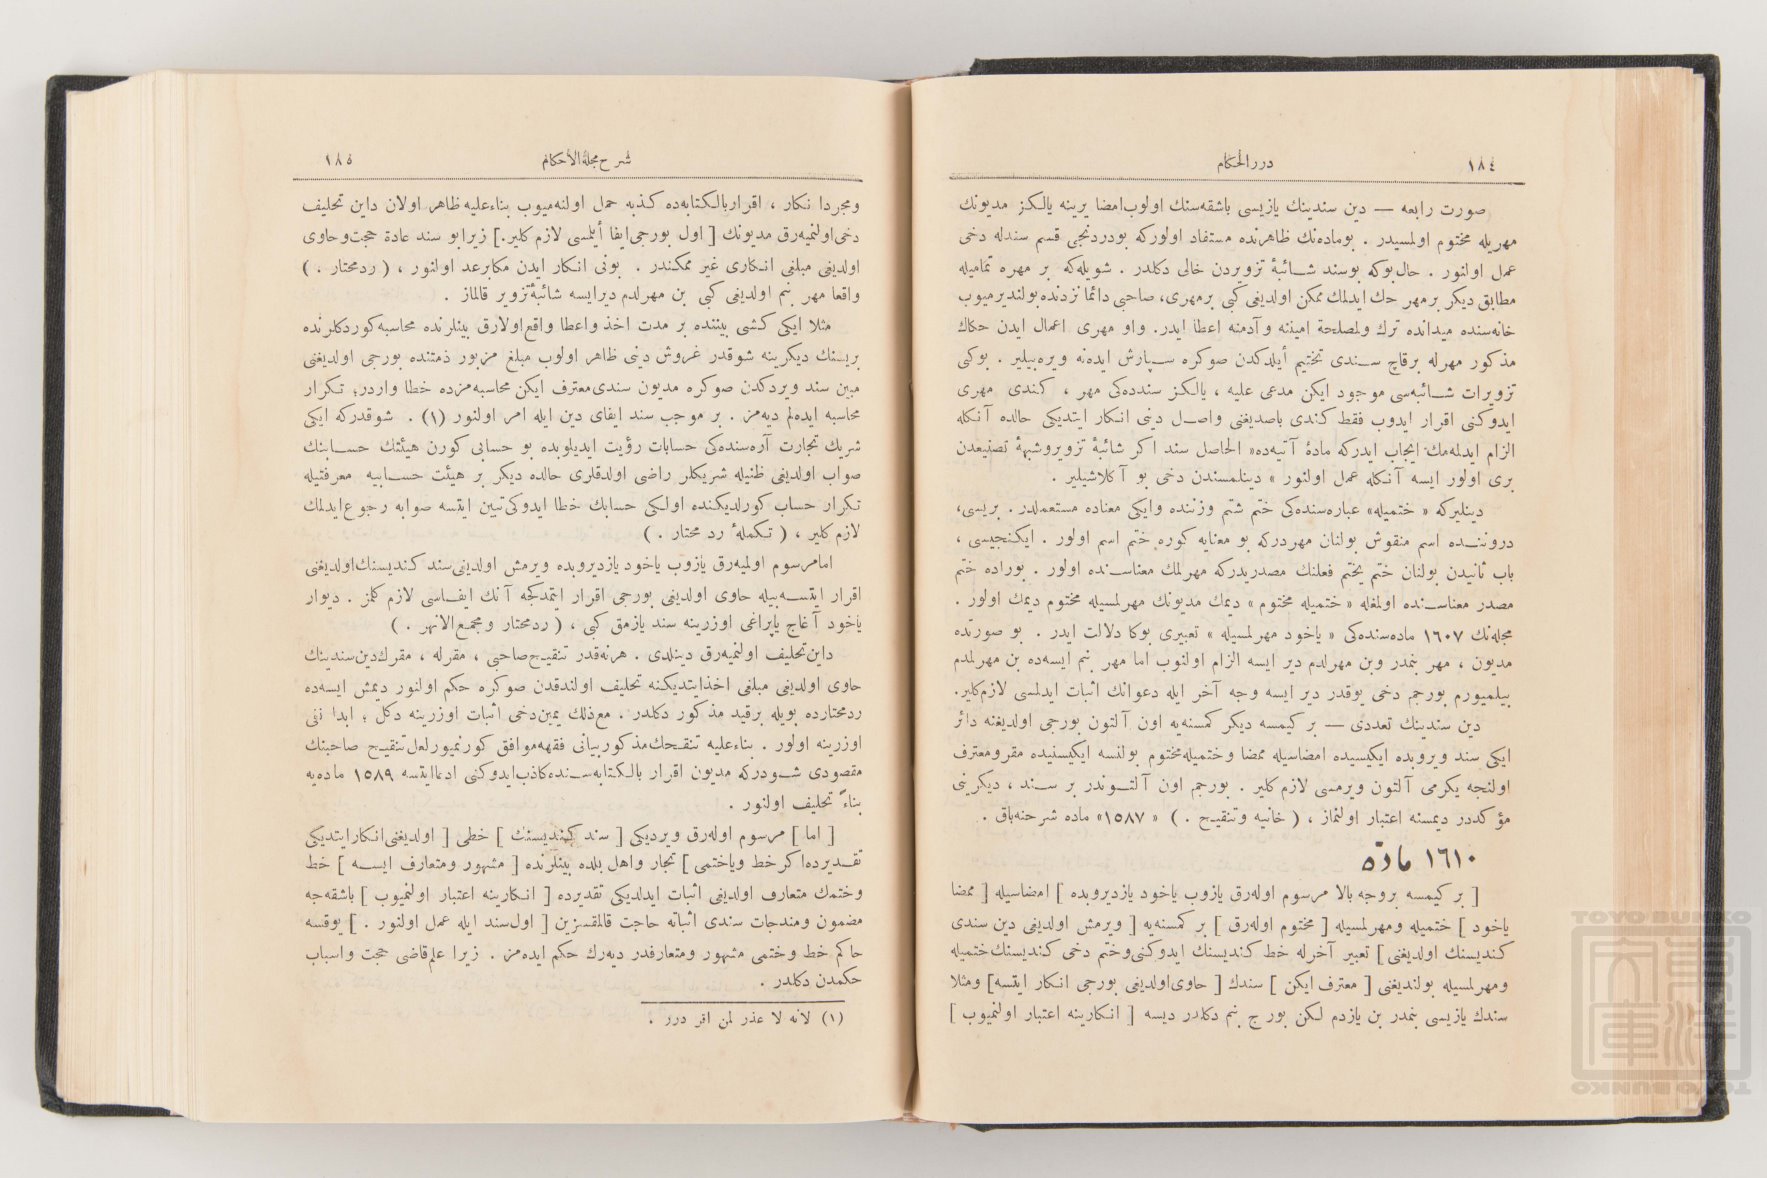 ١٨٤
دررالحكام
صورت رابعه — دين سندينك يازيسى باشقه‌سنك اولوب امضا يرينه يالكز مديونك
مهريله مختوم اولمسيدر . بوماده‌نك ظاهرنده مستفاد اولوركه بودردنجى قسم سندله دخى
عمل اولنور . حال بوكه بوسند شائبۀ تزويردن خالى دكلدر . شويله‌كه بر مهره تماميله
مطابق ديكر برمهر حك ايدلمك ممكن اولديغى كبى برمهرى، صاحبى دائما نزدنده بولنديرميوب
خانه‌سنده ميدانده ترك ولمصلحة امينه وآدمنه اعطا ايدر. واو مهرى اعمال ايدن حكاك
مذكور مهرله برقاچ سندى تختيم أيلدكدن صوكره سپارش ايدنه ويره‌بيلير . بوكبى
تزويرات شائبه‌سى موجود ايكن مدعى عليه ، يالكز سندده‌كى مهر ، كندى مهرى
ايدوكنى اقرار ايدوب فقط كندى باصديغنى واصل دينى انكار ايتديكى حالده آنكله
الزام ايدلمه‌مك ايجاب ايدركه مادۀ آتيه‌ده« الحاصل سند اكر شائبۀ تزوير وشبهۀ تصنيعدن
برى اولور ايسه آنكله عمل اولنور » دينلمسندن دخى بو آكلاشيلير .
دينليركه « ختميله» عباره‌سنده‌كى ختم شتم وزننده وايكى معناده مستعملدر . بريسى،
دروننده اسم منقوش بولنان مهردركه بو معنايه كوره ختم اسم اولور . ايكنجيسى ،
باب ثانيدن بولنان ختم يختم فعلنك مصدريدركه مهرلمك معناسنده اولور . بوراده ختم
مصدر معناسنده اولمغله « ختميله مختوم » ديمك مديونك مهرلمسيله مختوم ديمك اولور .
مجله‌نك ١٦٠٧ ماده‌سنده‌كى « ياخود مهرلمسيله » تعبيرى بوكا دلالت ايدر . بو صورتده
مديون ، مهر بنمدر وبن مهرلدم دير ايسه الزام اولنوب اما مهر بنم ايسه‌ده بن مهرلمدم
بيلميورم بورجم دخى يوقدر دير ايسه وجه آخر ايله دعوانك اثبات ايدلمسى لازم‌كلير.
دين سندينك تعددى — بر كيمسه ديكر كمسنه‌يه اون آلتون بورجى اولديغنه دائر
ايكى سند ويروبده ايكيسيده امضاسيله ممضا وختميله‌مختوم بولنسه ايكيسنيده مقرومعترف
اولنجه يكرمى آلتون ويرمسى لازم كلير . بورجم اون آلتوندر بر سند ، ديكرينى
مؤكددر ديمسنه اعتبار اولنماز ، ( خانيه وتنقيح . ) « ١٥٨٧» ماده شرحنه‌باق .
١٦١٠ مادّه
[ بر كيمسه بروجه بالا مرسوم اوله‌رق يازوب ياخود يازديروبده ] امضاسيله [ ممضا
ياخود ] ختميله ومهرلمسيله [ مختوم اوله‌رق ] بر كمسنه‌يه [ ويرمش اولديغى دين سندى
كندیسنك اولديغنى ] تعبير آخرله خط كنديسنك ايدوكنى‌وختم دخى كنديسنك‌ختميله
ومهرلمسيله بولنديغنى [ معترف ايكن ] سندك [ حاوى‌اولديغى بورجى انكار ايتسه] ومثلا
سندك يازيسى بنمدر بن يازدم لكن بورج بنم دكلدر ديسه [ انكارينه اعتبار اولنميوب ]
شرح مجلةالأحكام
١٨٥
ومجردا نكار ، اقراربالكتابه‌ده كذبه حمل اولنه‌ميوب بناءعليه ظاهر اولان داين تحليف
دخى‌اولنميه‌رق مديونك [ اول بورجى‌ايفا أيلمسى لازم كلير.] زيرابو سند عادة حجت‌وحاوى
اولديغى مبلغى انكارى غير ممكندر . بونى انكار ايدن مكابرعد اولنور ، ( ردمحتار . )
واقعا مهر بنم اولديغى كبى بن مهرلدم ديرايسه شائبۀتزوير قالماز .
مثلا ايكى كشى بيننده بر مدت اخذ واعطا واقع‌اولارق بينلرنده محاسبه‌كوردكلرنده
بريسنك ديكرينه شوقدر غروش دينى ظاهر اولوب مبلغ مزبور ذمتنده بورجى اولديغنى
مبين سند ويردكدن صوكره مديون سندى‌معترف ايكن محاسبه‌مزده خطا واردر؛ تكرار
محاسبه ايده‌لم ديه‌مز . بر موجب سند ايفاى دين ايله امر اولنور (١) . شوقدركه ايكى
شريك تجارت آره‌سنده‌كى حسابات رؤيت ايديلوبده بو حسابى كورن هيئتك حسابنك
صواب اولديغى ظنيله شريكلر راضى اولدقلرى حالده ديكر بر هيئت حسابيه معرفتيله
تكرار حساب كورلديكنده اولكى حسابك خطا ايدوكى‌تبين ايتسه صوابه رجوع‌ايدلمك
لازم كلير ، ( تكملۀ رد محتار . )
امامرسوم اولميه‌رق يازوب ياخود يازديروبده ويرمش اولديغى‌سند كنديسنك‌اولديغنى
اقرار ايتسه‌بيله حاوى اولديغى بورجى اقرار ايتمدكجه آنك ايفاسى لازم كلمز . ديوار
ياخود آغاج ياپراغى اوزرينه سند يازمق كبى ، ( ردمحتار ومجمع‌الانهر . )
داين‌تحليف اولنميه‌رق دينلدى . هرنه‌قدر تنقيح‌صاحبى ، مقرله ، مقرك‌دين‌سندينك
حاوى اولديغى مبلغى اخذايتديكنه تحليف اولندقدن صوكره حكم اولنور ديمش ايسه‌ده
ردمحتارده بويله برقيد مذكور دكلدر . مع‌ذلك يمين‌دخى اثبات اوزرينه دكل ؛ ابدا نفى
اوزرينه اولور . بناءعليه تنقيحك‌مذكوربيانى فقهه‌موافق كورنميورلعل‌تنقيح صاحبنك
مقصودى شودركه مديون اقرار بالكتابه‌سنده‌كاذب‌ايدوكنى ادعاايتسه ١٥٨٩ ماده‌يه
بناءً تحليف اولنور .
[ اما ] مرسوم اوله‌رق ويرديكى [ سند كنديسنك ] خطى [ اولديغنى‌انكارايتديكى
تقديرده‌اكرخط وياختمى ] تجار واهل بلده بينلرنده [ مشهور ومتعارف ايسه ] خط
وختمك متعارف اولديغى اثبات ايدلديكى تقديرده [ انكارينه اعتبار اولنميوب ] باشقه‌جه
مضمون ومندجات سندى اثباته حاجت قالمقسزين [ اول‌سند ايله عمل اولنور . ] يوقسه
حاكم خط وختمى مشهور ومتعارفدر ديه‌رك حكم ايده‌مز . زيرا علم‌قاضى حجت واسباب
حكمدن دكلدر .
(١) لانه لا عذر لمن اقر درر .
TOYO BUNKO
東洋文庫
TOYO BUNKO